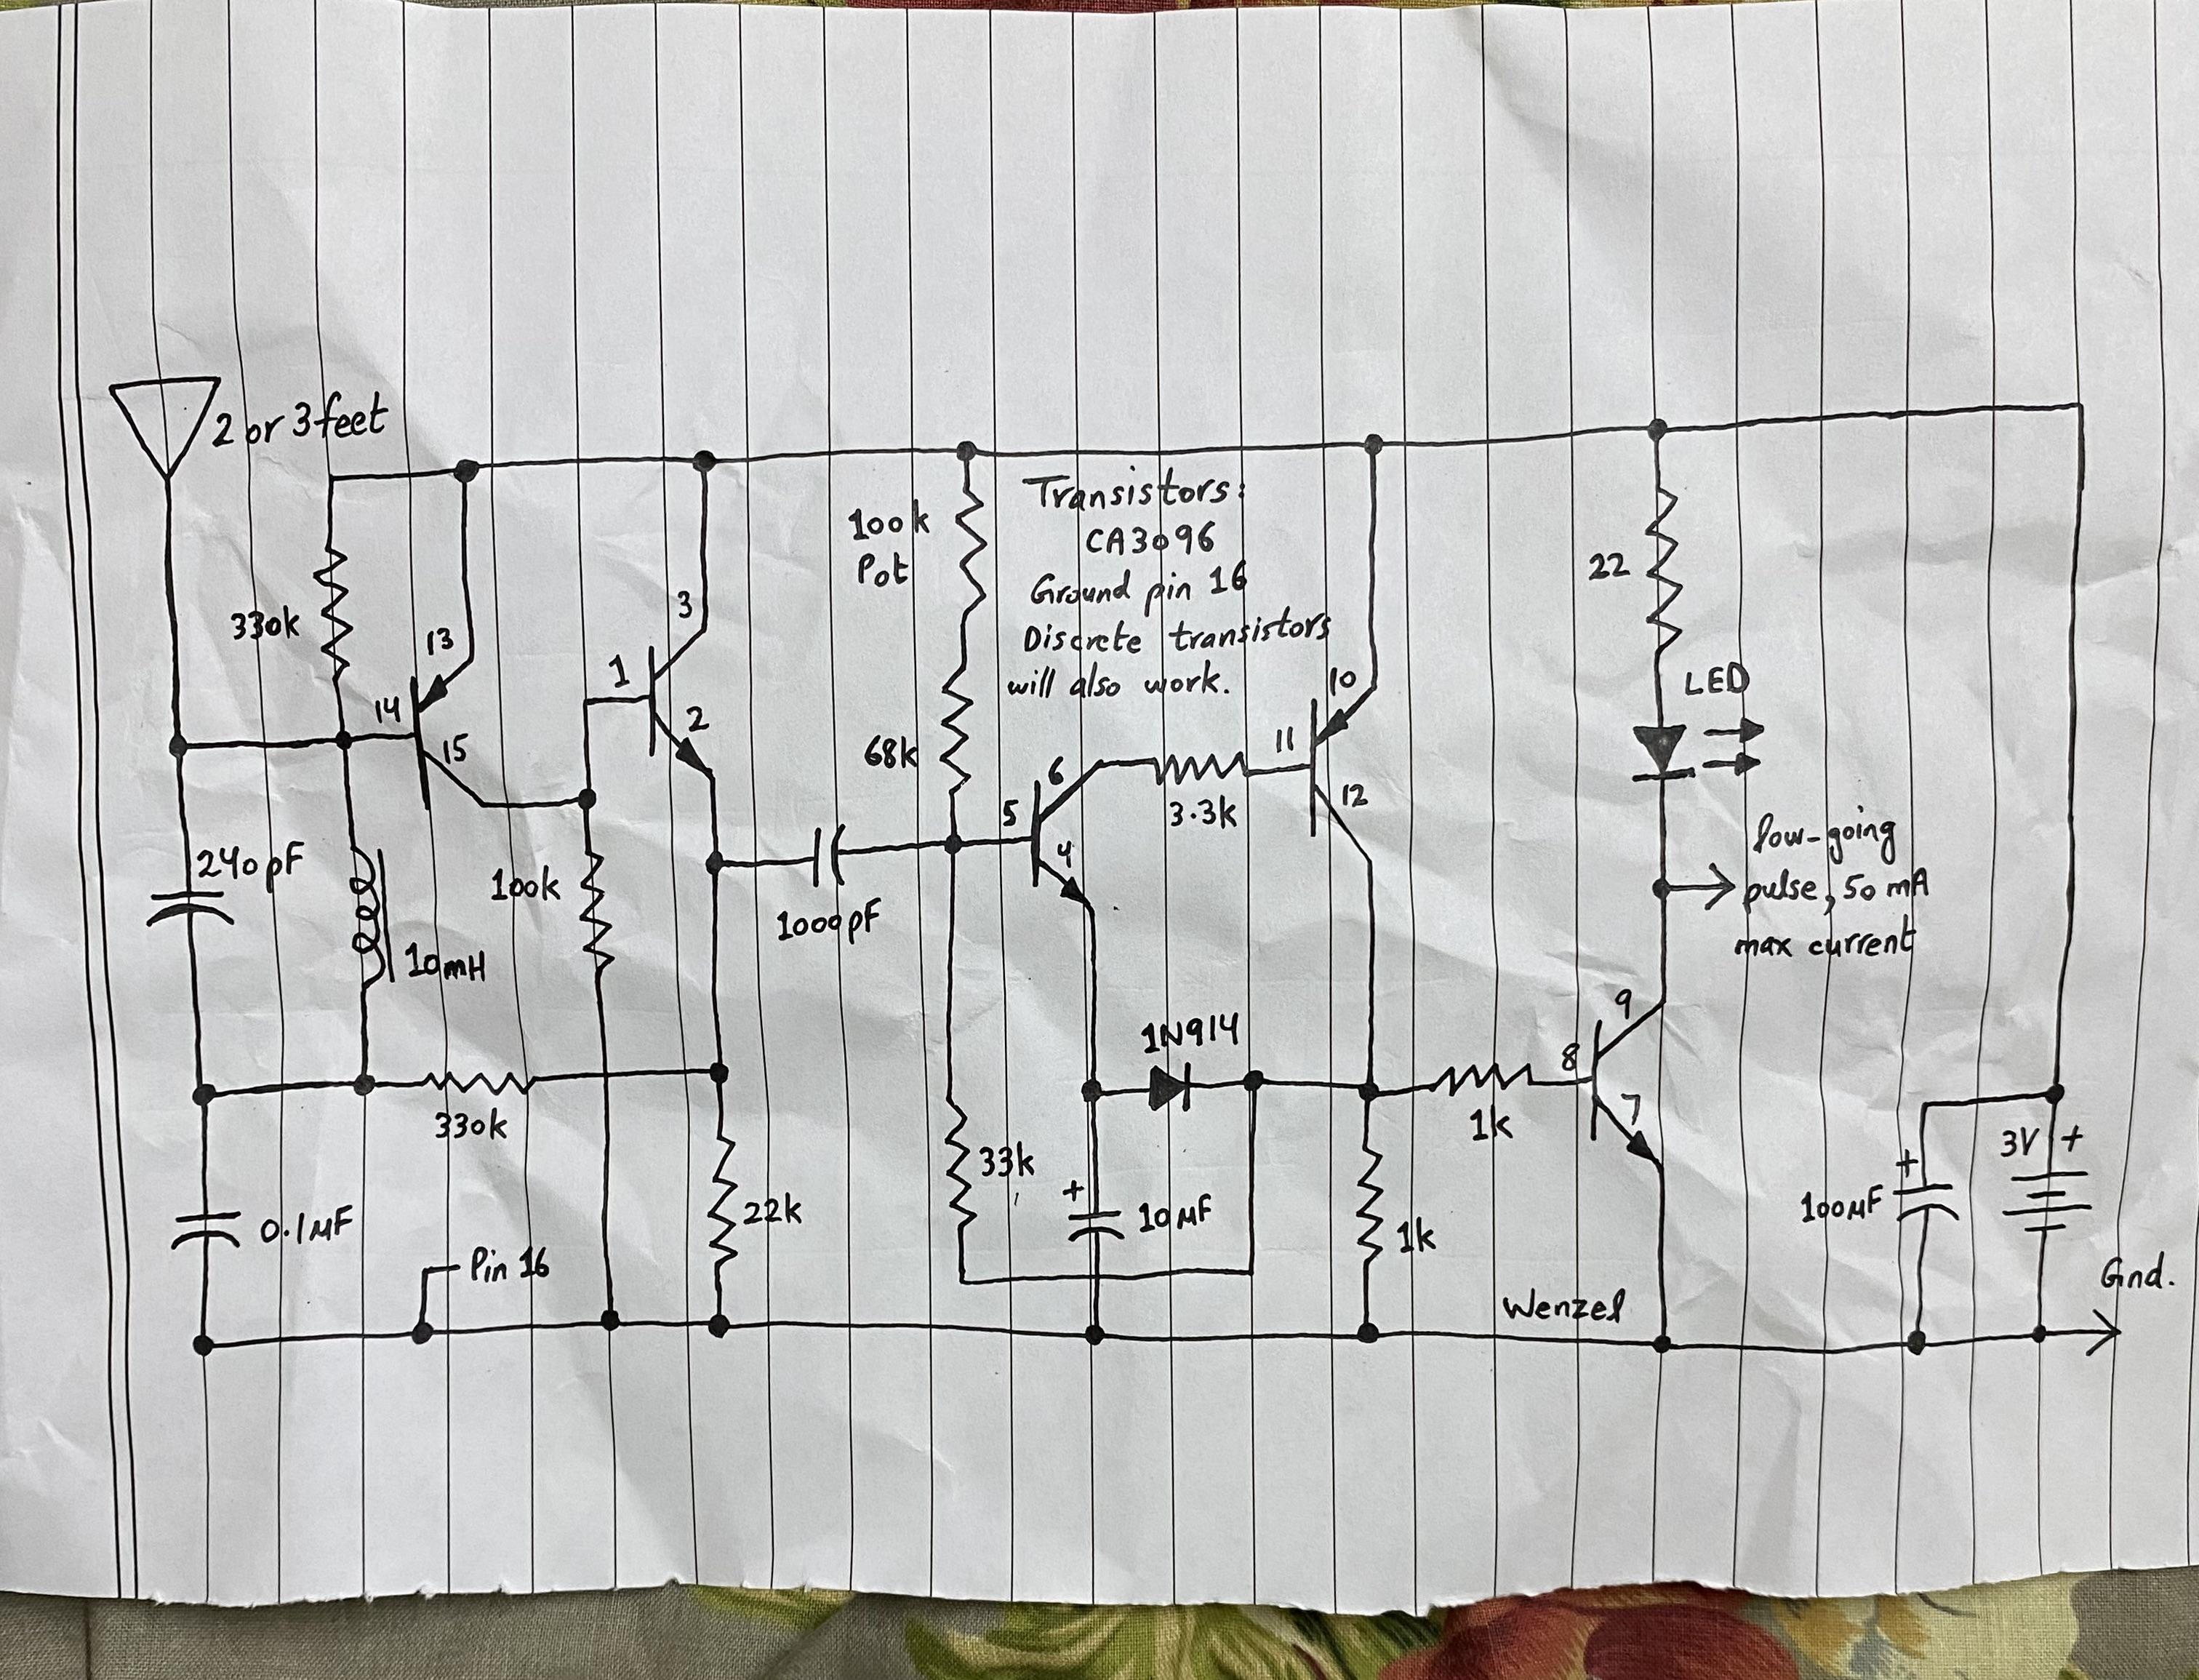 2 or 3 feet
330k
13
14
15
240pF
10mH
100k
330k
0.1µF
Pin 16
3
1
2
22k
1000pF
100k
Pot
68k
33k
Transistors:
CA3096
Ground pin 16
Discrete transistors
will also work.
5
6
4
3.3k
11
10
12
1N914
+
10µF
1k
1k
8
9
7
22
LED
low-going
pulse, 50 mA
max current
Wenzel
+
100µF
3V +
Gnd.